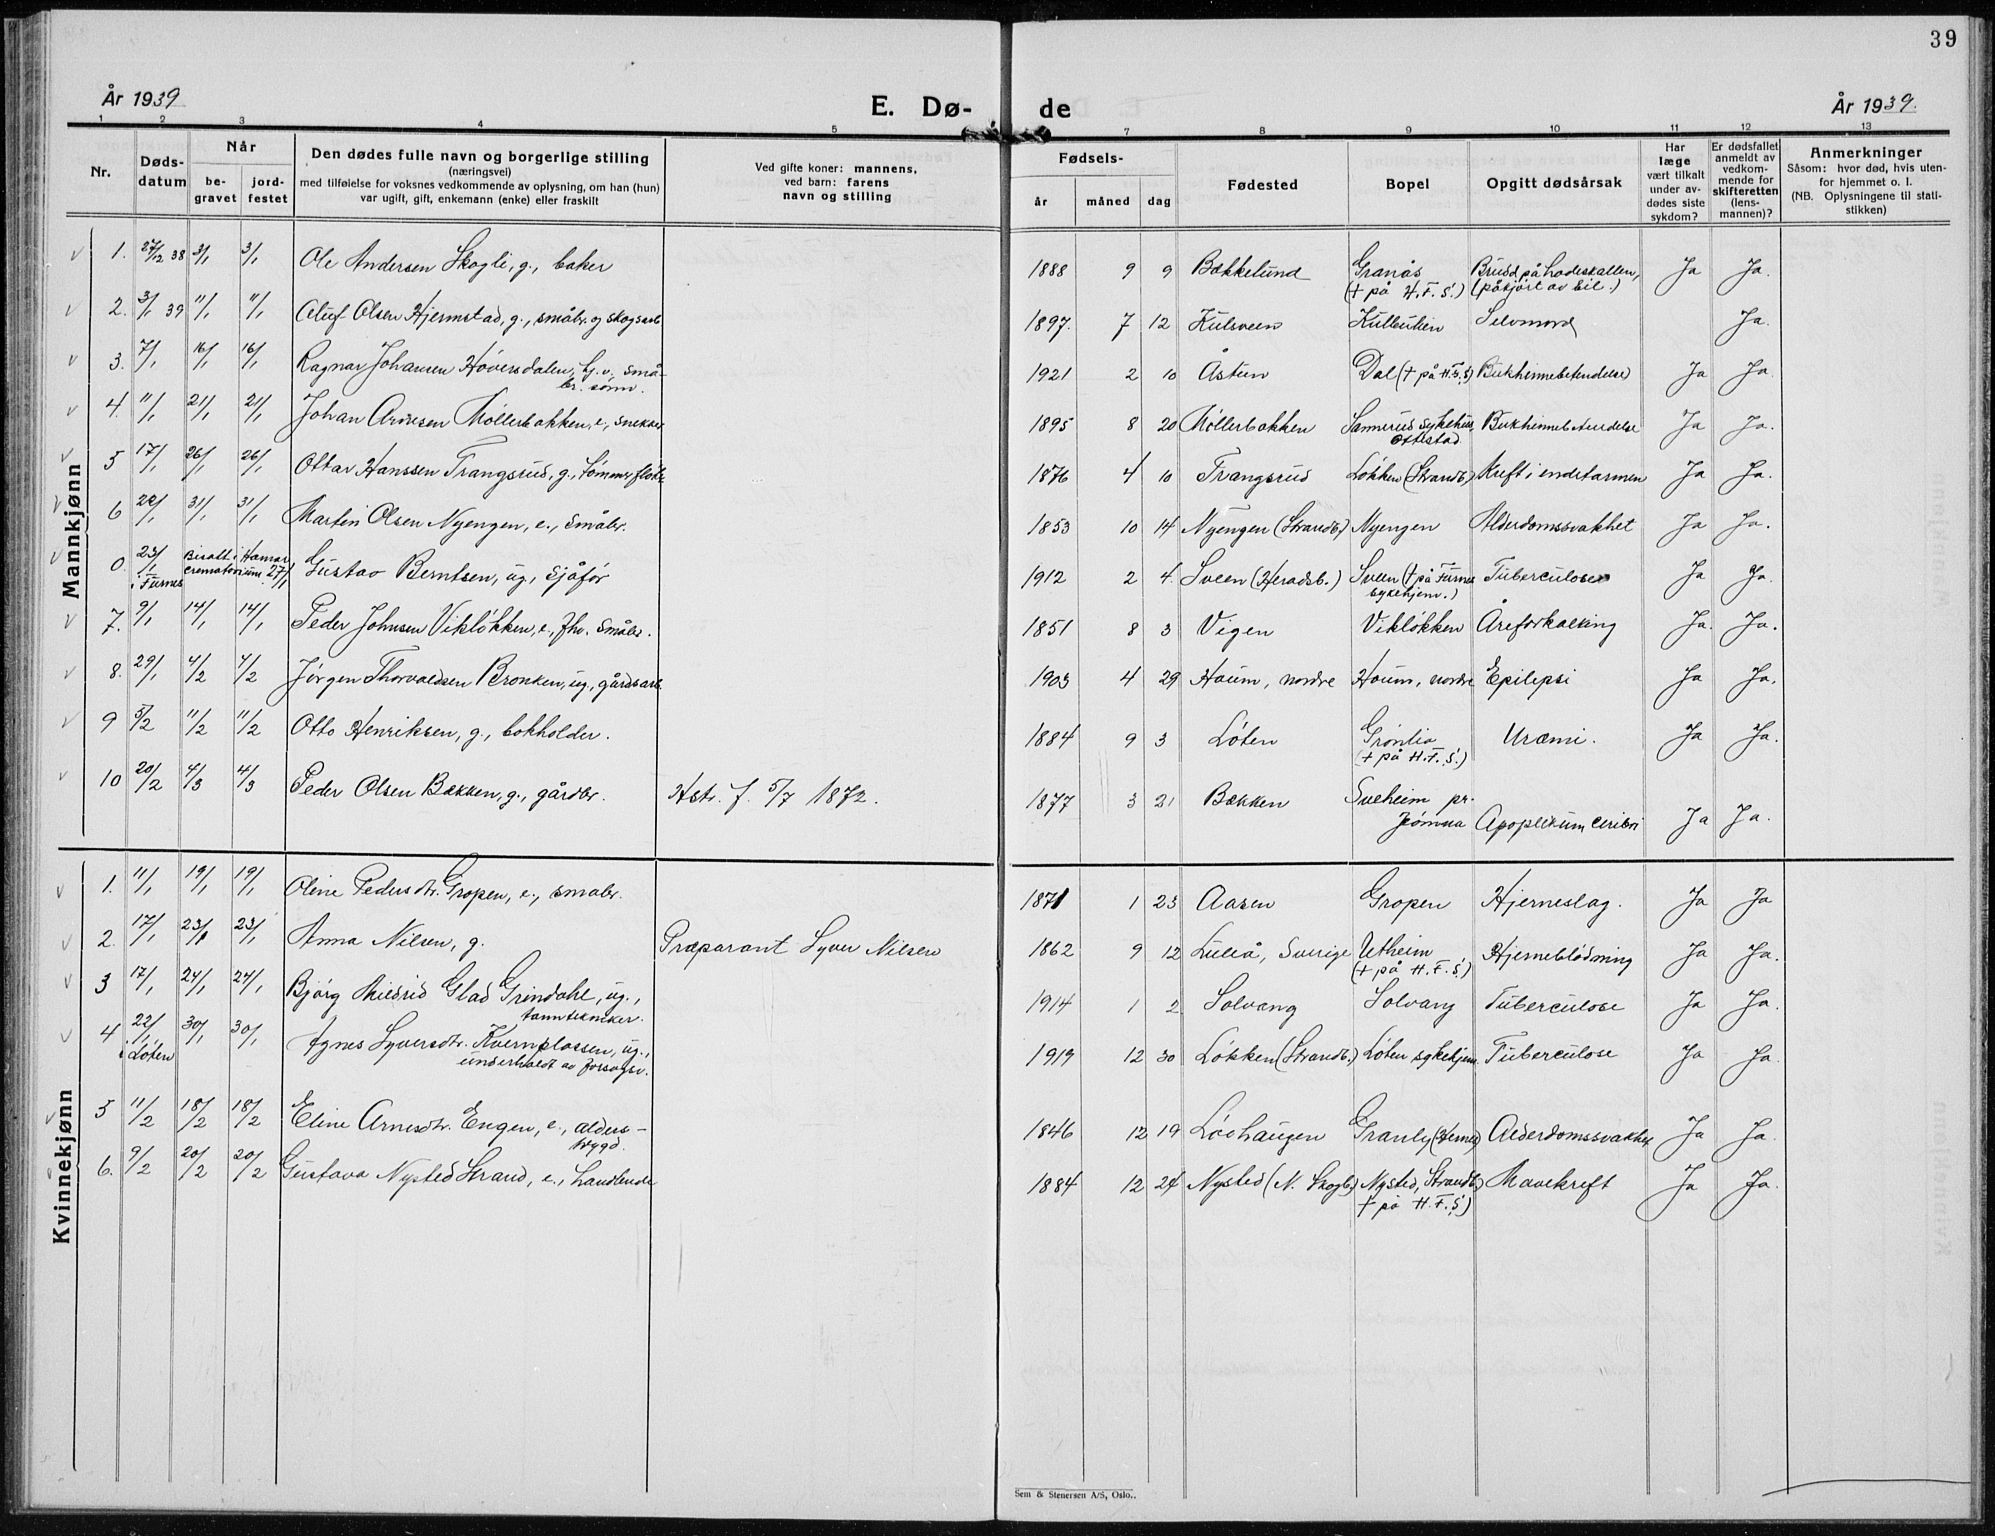 39
År 1939
E. Dø-
de
År 1939.
1 2 3 4 5 7 8 9 10 11 12 13
Nr.
Døds-
datum
Når
be-
gravet
jord-
festet
Den dødes fulle navn og borgerlige stilling
(næringsvei)
med tilføielse for voksnes vedkommende av oplysning, om han (hun)
var ugift, gift, enkemann (enke) eller fraskilt
Ved gifte koner: mannens,
ved barn: farens
navn og stilling
Fødsels-
år måned dag
Fødested
Bopel
Opgitt dødsårsak
Har
læge
vært tilkalt
under av-
dødes siste
sykdom?
Er dødsfallet
anmeldt av
vedkom-
mende for
skifteretten
(lens-
mannen)?
Anmerkninger
Såsom: hvor død, hvis uten-
for hjemmet o. l.
(NB. Oplysningene til stati-
stikken)
Mannkjønn
1. 27/12 38 3/1 3/1 Ole Andersen Skogli, g., baker 1888 9 9 Bækkelund Granås Brudd på hodeskallen, Ja Ja.
(+ på H.F.S.) (påkjørt av bil.)
2. 3/1 39 11/1 11/1 Oluf Olsen Hjermstad, g., småbr. og skogsarb 1897. 7 12 Kulsveen Selvmord Ja.
3. 7/1 16/1 16/1 Ragnar Johansen Høversdalen, hj.v. små- 1921 2 10 Åstun Dal (+ på H.F.S) Bukhinnebetendelse Ja Ja.
br. sønn.
4. 11/1 21/1 21/1 Johan Arnesen Møllerbakken, e., snekker 1895 8 20 Møllerbakken Sannerud sykehus, Bukhinnebetendelse Ja Ja.
Ottestad
5 17/1 26/1 26/1 Ottar Hanssen Trangsrud, g., tømmerfløt. 1876 4 10 Trangsrud Løkken (Strandb.) Kreft i endetarmen Ja Ja.
6 22/1 31/1 31/1 Martin Olsen Nyengen, e., småbr. 1853 10 14 Nyengen (Strandb.) Nyengen Alderdomssvakhet Ja Ja.
0. 23/1 i Furnes Bisatt i Hamar crematorium 27/1 Gustav Berntsen, ug., sjåfør 1912 2 4. Sveen (Heradsb.) Sveen (+ på Furnes Tuberculose Ja Ja.
sykehjem.)
7. 9/1 14/1 14/1 Peder Johnsen Vikløkken, e., fhv. småbr. 1851 8 3 Vigen Vikløkken Åreforkalking Ja. Ja.
8. 29/1 4/2 4/2 Jørgen Thorvaldsen Bronken, ug., gårdsarb. 1903 4 29 Houm, nordre Houm, nordre Epilepsi Ja Ja.
9 5/2 11/2 11/2 Otto Henriksen, g., bokholder. 1884 9 3 Løten Grønlia Uræmi. Ja Ja.
(+ på H.F.S.)
10 20/2 4/3 4/3 Peder Olsen Bækken, g., gårdbr. Hstr. f. 5/7 1872. 1877 3 21 Bækken Sveheim pr.
Jømna Ja Ja.
Kvinnekjønn
1. 11/1 19/1 19/1 Oline Pedersdtr. Gropen, e., småbr. 1871 1 23 Aasen Gropen Hjerneslag. Ja Ja
2. 17/1 23/1 23/1 Anna Nilsen, g. Præparant Syver Nilsen 1862 9 12 Luleå, Sverige Utheim Hjerneblødning Ja Ja.
(+ på H.F.S.)
3 17/1 24/1 24/1 Bjørg Mildrid Glad Grindahl, ug., 1914 1 2 Solvang Solvang Tuberculose Ja Ja.
tanntekniker.
4 22/1 30/1 30/1 Agnes Syversdtr. Kvernplassen, ug., 1919 12 30 Løkken (Strandb.) Løten sykehjem Tuberculose Ja Ja.
i Løten underholdt av forsorgsv.
5 11/2 18/2 18/2 Eline Arnesdtr. Engen, e., alders- 1846 12 19 Lødhaugen Granly (Hernes) Alderdomssvakhet Ja Ja.
trygd.
6. 9/2 20/2 20/2 Gustava Nysted Strand, e., handlende 1884 12 24 Nysted (N. Skogb.) Nysted, Strandb.) Mavekreft Ja Ja.
+ på H.F.S.)
Sem & Stenersen A/S, Oslo..